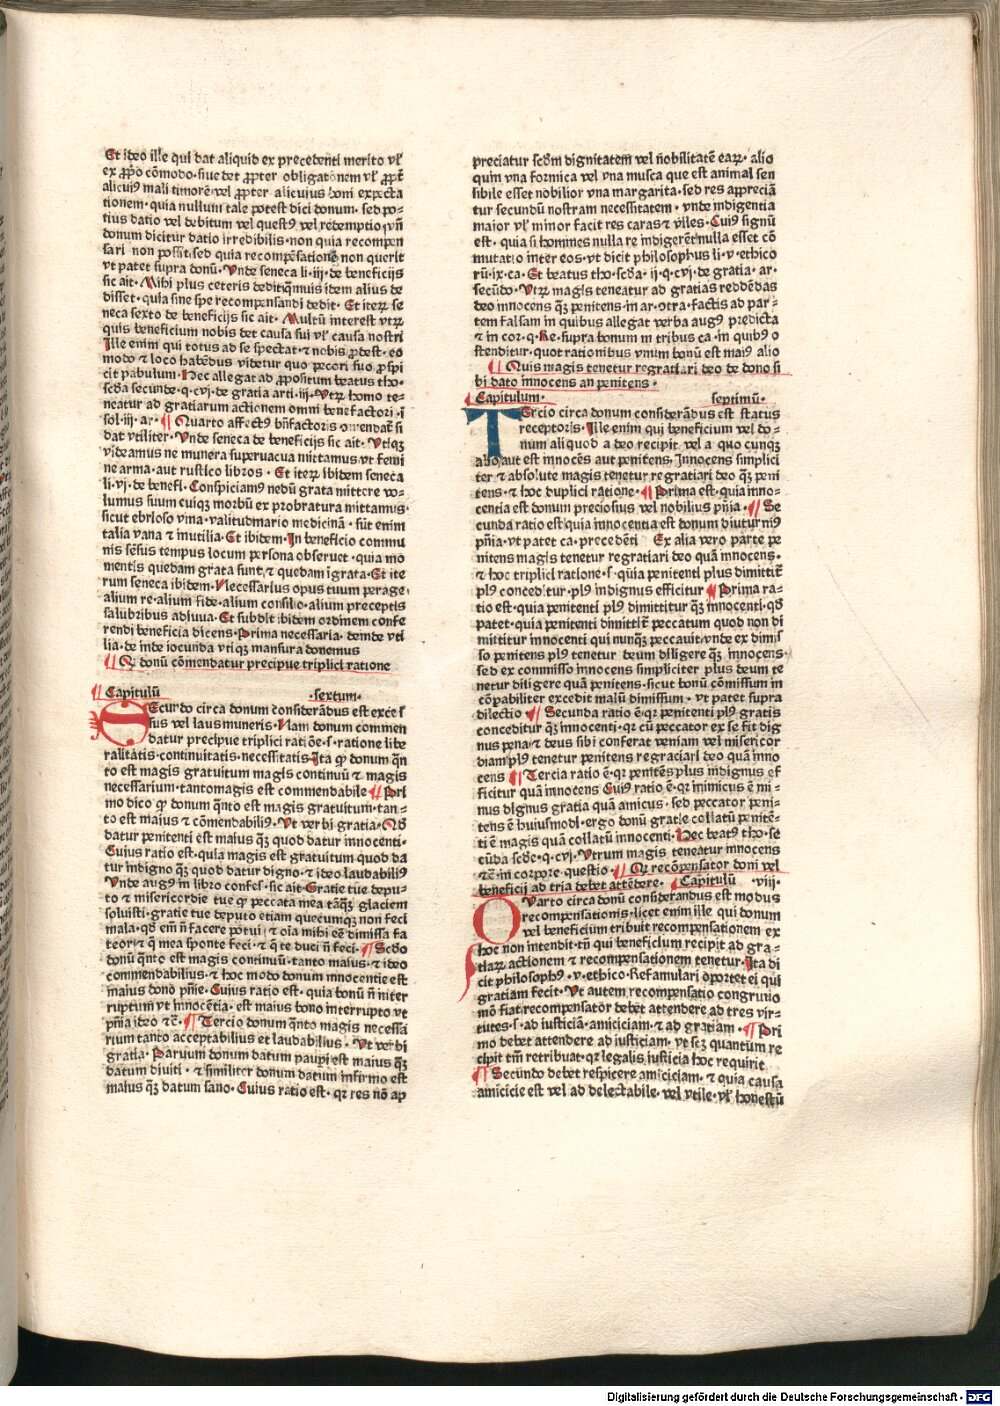 Et ideo ille qui dat aliquid ex precedenti merito vł
ex ꝓpo cōmodo· siue det ꝓpter obligatonem vł ꝓpt
alicuiꝰ mali timorē vel ꝓpter alicuius boni expecta
tionem· quia nullum tale potest dici donum· sed po-
tius datio vel debitum vel questꝰ vel redemptio· vñ
donum dicitur datio irredibilis· non quia recompen
sari non possit· sed quia recompēsationē non querit
vt patet supra donū· Vnde seneca li· iij· de beneficijs
sic ait· Mihi plus ceteris dedit qͫuis idem alius de
disset· quia sine spe recompensandi dedit· Et iteꝝ se
neca sexto de beneficijs sic ait· Multū interest vtꝝ
quis beneficium nobis det causa sui vł causa nostri
Ille enim qui totus ad se spectat· ⁊ nobis ꝓdest· eo
modo ⁊ loco habēdus videtur quo pecori suo ꝓspi
cit pabulum· Hec allegat ad ꝓpositum beatus tho·
scđa secunde· q· cvj· de gratia arti· iij· Vtꝝ homo te-
neatur ad gratiarum actionem omni benefactori· i
sol· iij· ar· ¶ Quarto affectꝰ bñfactoris omendat̄ si
dat vtiliter· Vnde seneca de beneficijs sic ait· Vtiqꝫ
videamus ne munera superuacua mittamus vt femi
ne arma· aut rustico libros· Et iteꝝ ibidem seneca
li· vj· de benefi· Conspiciamꝰ nedū grata mittere vo-
lumus suum cuiqꝫ morbū ex probratura mittamus·
sicut ebrioso vina· valitudinario medicinā· sūt enim
talia vana ⁊ inutilia· Et ibidem· In beneficio commu
nis sēsus tempus locum persona obseruet· quia mo
mentis quedam grata sunt, ⁊ quedam īgrata· Et ite
rum seneca ibidem· Necessarius opus tuum perage·
alium re· alium fide· alium consilio· alium preceptis
salubribus adiuua· Et subdit ibidem ordinem confe
rendi beneficia dicens· Prima necessaria· deinde vti
lia· de inde iocunda vtiqꝫ mansura donemus
¶ Q donū cōmendatur precipue triplici ratione
¶ Capitulū ·sextum·
Secundo circa donum considerādus est exce s
sus vel laus muneris· Nam donum commen
datur precipue triplici ratiōe· s· ratione libe
ralitatis· continuitatis· necessitatis· Ita ꝙ donum qn̄
to est magis gratuitum magis continuū ⁊ magis
necessarium· tantomagis est commendabile ¶ Pri
mo dico ꝙ donum qn̄to est magis gratuitum· tan-
to est maius ⁊ cōmendabiliꝰ· Vt verbi gratia· Qđ
datur penitenti est maius qͫꝫ quod datur innocenti·
Cuius ratio est· quia magis est gratuitum quod da
tur indigno qͫꝫ quod datur digno· ⁊ ideo laudabiliꝰ
Vnde augꝰ in libro confes· sic ait· Gratie tue depu-
to ⁊ misericordie tue ꝙ peccata mea tāqͫꝫ glaciem
soluisti· gratie tue deputo etiam quecumqꝫ non feci
mala· qđ em̄ n̄ facere potui ⁊ oīa mihi eē dimissa fa
teor· ⁊ q̄ mea sponte feci· ⁊ q̄ te duci n̄ feci· ¶ Scđo
donū qn̄to est magis continuū· tanto maius· ⁊ ideo
commendabilius· ⁊ hoc modo donum innocentie est
maius dono pn̄ie· Cuius ratio est· quia donū n̄ inter
ruptum vt innocētia· est maius dono interrupto vt
pn̄ia ideo ⁊c̄· ¶ Tercio donum qn̄to magis necessa
rium tanto acceptabilius et laudabilius· Vt verbi
gratia· Paruum donum datum paupi est maius qͫꝫ
datum diuiti· ⁊ similiter donum datum infirmo est
maius qͫꝫ datum sano· Cuius ratio est· qꝛ res nō ap
preciatur scđm dignitatem vel nobilitatē eaꝝ· alio
quin vna formica vel vna musca que est animal sen
sibile esset nobilior vna margarita· sed res appreciā
tur secundū nostram necessitatem· vnde indigentia
maior vł minor facit res caras ⁊ viles· Cuiꝰ signū
est· quia si homines nulla re indigerēt nulla esset cō
mutatio inter eos· vt dicit philosophus li· v· ethico
rū· ix· ca· Et beatus tho· scđa· ij· q· cvj· de gratia· ar·
secūdo· Vtꝝ magis teneatur ad gratias reddēdas
deo innocens qͫꝫ penitens· in ar· ↄtra· factis ad par-
tem falsam in quibus allegat verba augꝰ predicta
⁊ in cor· q· Re· supra bonum in tribus ca· in quibꝰ o
stenditur· quot rationibus vnum bonū est maiꝰ alio
¶ Quis magis tenetur regratiari deo de dono si
bi dato innocens an penitens·
Capitulum· septimū·
Tercio circa donum considerādus est status
receptoris· Ille enim qui beneficium vel do-
num aliquod a deo recipit vel a quo cunqꝫ
alio, aut est innocēs aut penitens· Innocens simplici
ter ⁊ absolute magis tenetur regratiari deo qͫꝫ peni
tens· ⁊ hoc duplici ratione· ¶ Prima est· quia inno-
centia est donum preciosius vel nobilius pn̄ia· ¶ Se
cunda ratio est quia innocentia est donum diuturniꝰ
pn̄ia· vt patet ca· precedēti Ex alia vero parte pe
nitens magis tenetur regratiari deo quā innocens·
⁊ hoc triplici ratione· s· quia penitenti plus dimittit̄
plꝰ conceditur· plꝰ indignus efficitur ¶ Prima ra-
tio est· quia penitenti plꝰ dimittitur qͫꝫ innocenti· qđ
patet· quia penitenti dimittit̄ peccatum quod non di
mittitur innocenti qui nunqͫꝫ peccauit· vnde ex dimis
so penitens plꝰ tenetur deum diligere qͫꝫ innocens·
sed ex commisso innocens simpliciter plus deum te
netur diligere quā penitens· sicut bonū cōmissum in
cōpabiliter excedit malū dimissum· vt patet supra
dilectio· ¶ Secunda ratio ē· qꝛ penitenti plꝰ gratis
conceditur qͫꝫ innocenti· qꝛ cū peccator ex se sit dig
nus pena· ⁊ deus sibi conferat veniam vel misericor
diam plꝰ tenetur penitens regraciari deo quā inno
cens ¶ Tercia ratio ē· qꝛ penitēs plus indignus ef
ficitur quā innocens Cuiꝰ ratio ē· qꝛ inimicus ē mi-
nus dignus gratia quā amicus· sed peccator peni-
tens ē huiusmodi· ergo donū gratie collatū penitē-
ti ē magis quā collatū innocenti· Hec beatꝰ tho· se
cūda scđe· q· cvj· Vtrum magis teneatur innocens
⁊c̄· in corpore questio· ¶ Qꝛ recōpensator doni vel
beneficij ad tria debet attēdere· ¶ Capitulū ·viij·
Quarto circa donū considerandus est modus
recompensationis· licet enim ille qui donum
vel beneficium tribuit recompensationem ex
hoc non intendit· tn̄ qui beneficium recipit ad gra-
tiaꝝ actionem ⁊ recompensationem tenetur· Ita di
cit philosophꝰ· v· ethico· Refamulari oportet ei qui
gratiam fecit· Vt autem recompensatio congruuo
mō fiat recompensator debet attendere ad tres vir-
tutes· s· ad iusticiā· amiciciam· ⁊ ad gratiam· ¶ Pri
mo debet attendere ad iusticiam· vt scꝫ quantum re
cipit tm̄ retribuat· qꝛ legalis iusticia hoc requirit
¶ Secundo debet respicere amiciciam· ⁊ quia causa
amicicie est vel ad delectabile· vel vtile· vł honestū
Digitalisierung gefördert durch die Deutsche Forschungsgemeinschaft - DFG